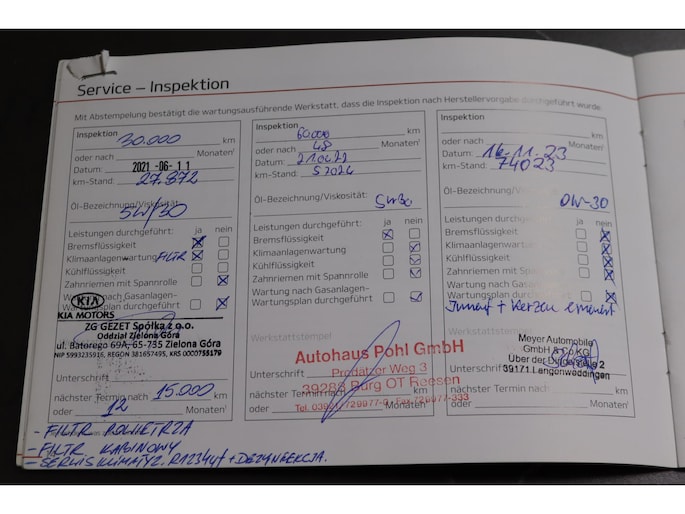 Service – Inspektion
Mit Abstempelung bestätigt die wartungsausführende Werkstatt, dass die Inspektion nach Herstellervorgabe durchgeführt wurde.
Inspektion 30.000 km
oder nach Monaten¹
Datum: 2021 -06- 11
km-Stand: 27.372
Öl-Bezeichnung/Viskosität:
5W/30
Leistungen durchgeführt: ja nein
Bremsflüssigkeit
Klimaanlagenwartung FILTR
Kühlflüssigkeit
Zahnriemen mit Spannrolle
Wartung nach Gasanlagen-
Wartungsplan durchgeführt
KIA
KIA MOTORS
ZG GEZET Spółka z o.o.
Oddział Zielona Góra
ul. Batorego 69A, 65-735 Zielona Góra
NIP 5993235916, REGON 381657495, KRS 0000755179
Unterschrift
nächster Termin nach 15.000 km
oder 12 Monaten¹
Inspektion 60000 km
oder nach 48 Monaten¹
Datum: 21.04.22
km-Stand:
Öl-Bezeichnung/Viskosität:
5W30
Leistungen durchgeführt: ja nein
Bremsflüssigkeit
Klimaanlagenwartung
Kühlflüssigkeit
Zahnriemen mit Spannrolle
Wartung nach Gasanlagen-
Wartungsplan durchgeführt
Werkstattstempel
Autohaus Pohl GmbH
Unterschrift Predatior Weg 3
nächster Termin nach km
39288 Burg OT Reesen
oder Monaten¹
Tel. 03921/729977-0, Fax 729977-333
Inspektion km
oder nach Monaten¹
Datum: 16.11.23
km-Stand: 74023
Öl-Bezeichnung/Viskosität:
0W-30
Leistungen durchgeführt: ja nein
Bremsflüssigkeit
Klimaanlagenwartung
Kühlflüssigkeit
Zahnriemen mit Spannrolle
Wartung nach Gasanlagen-
Wartungsplan durchgeführt
+ Kerzen erneuert
Werkstattstempel
Meyer Automobile
GmbH & Co KG
Über der 2
Unterschrift 39171 Langenweddingen
nächster Termin nach km
oder Monaten¹
- FILTR POWIETRZA
- FILTR KABINOWY
- SERWIS KLIMATYZ. R1234yf + DEZYNFEKCJA.